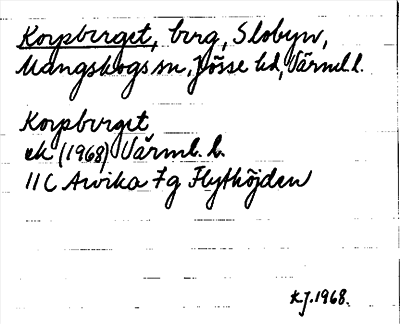 Korpberget, berg, Slobyn,
Mangskogs sn, Jösse hd, Värml. l.
Korpberget
ek (1968) Värml. l.
11C Arvika 7g Flythöjden
K.J. 1968.